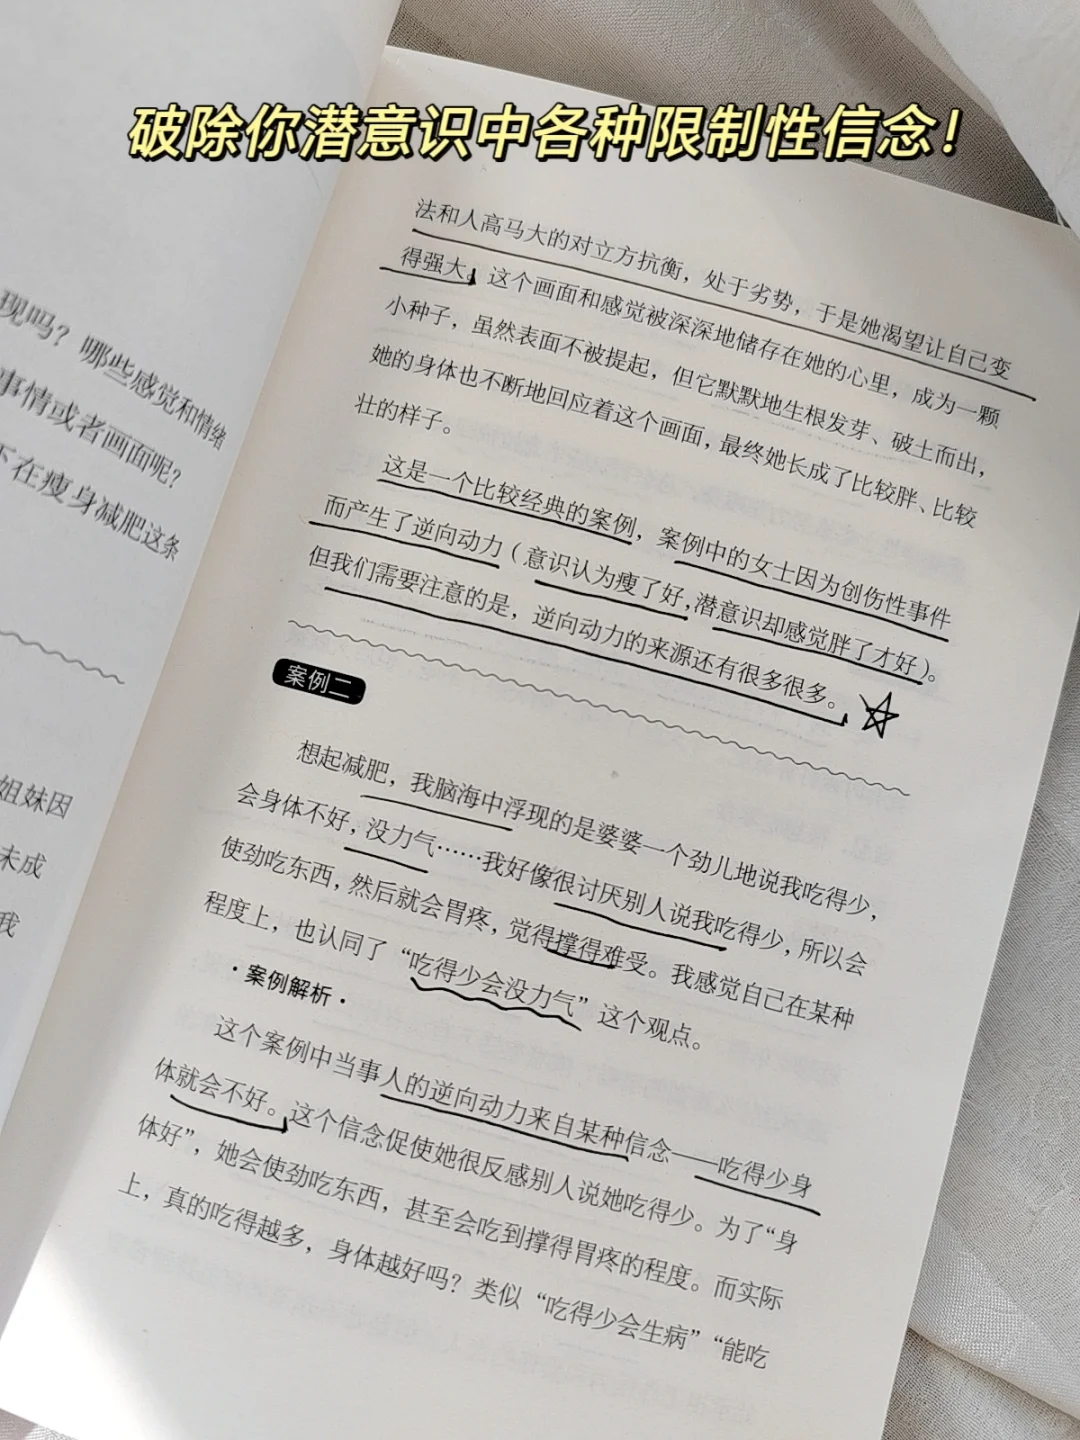 破除你潜意识中各种限制性信念！
现吗？哪些感觉和情绪
事情或者画面呢？
下在瘦身减肥这条
姐妹因
未成
我
法和人高马大的对立方抗衡，处于劣势，于是她渴望让自己变
得强大。这个画面和感觉被深深地储存在她的心里，成为一颗
小种子，虽然表面不被提起，但它默默地生根发芽、破土而出，
她的身体也不断地回应着这个画面，最终她长成了比较胖、比较
壮的样子。
这是一个比较经典的案例，案例中的女士因为创伤性事件
而产生了逆向动力（意识认为瘦了好，潜意识却感觉胖了才好）。
但我们需要注意的是，逆向动力的来源还有很多很多。
案例二
想起减肥，我脑海中浮现的是婆婆一个劲儿地说我吃得少，
会身体不好，没力气……我好像很讨厌别人说我吃得少，所以会
使劲吃东西，然后就会胃疼，觉得撑得难受。我感觉自己在某种
程度上，也认同了“吃得少会没力气”这个观点。
·案例解析·
这个案例中当事人的逆向动力来自某种信念——吃得少身
体就会不好。这个信念促使她很反感别人说她吃得少。为了“身
体好”，她会使劲吃东西，甚至会吃到撑得胃疼的程度。而实际
上，真的吃得越多，身体越好吗？类似“吃得少会生病”“能吃